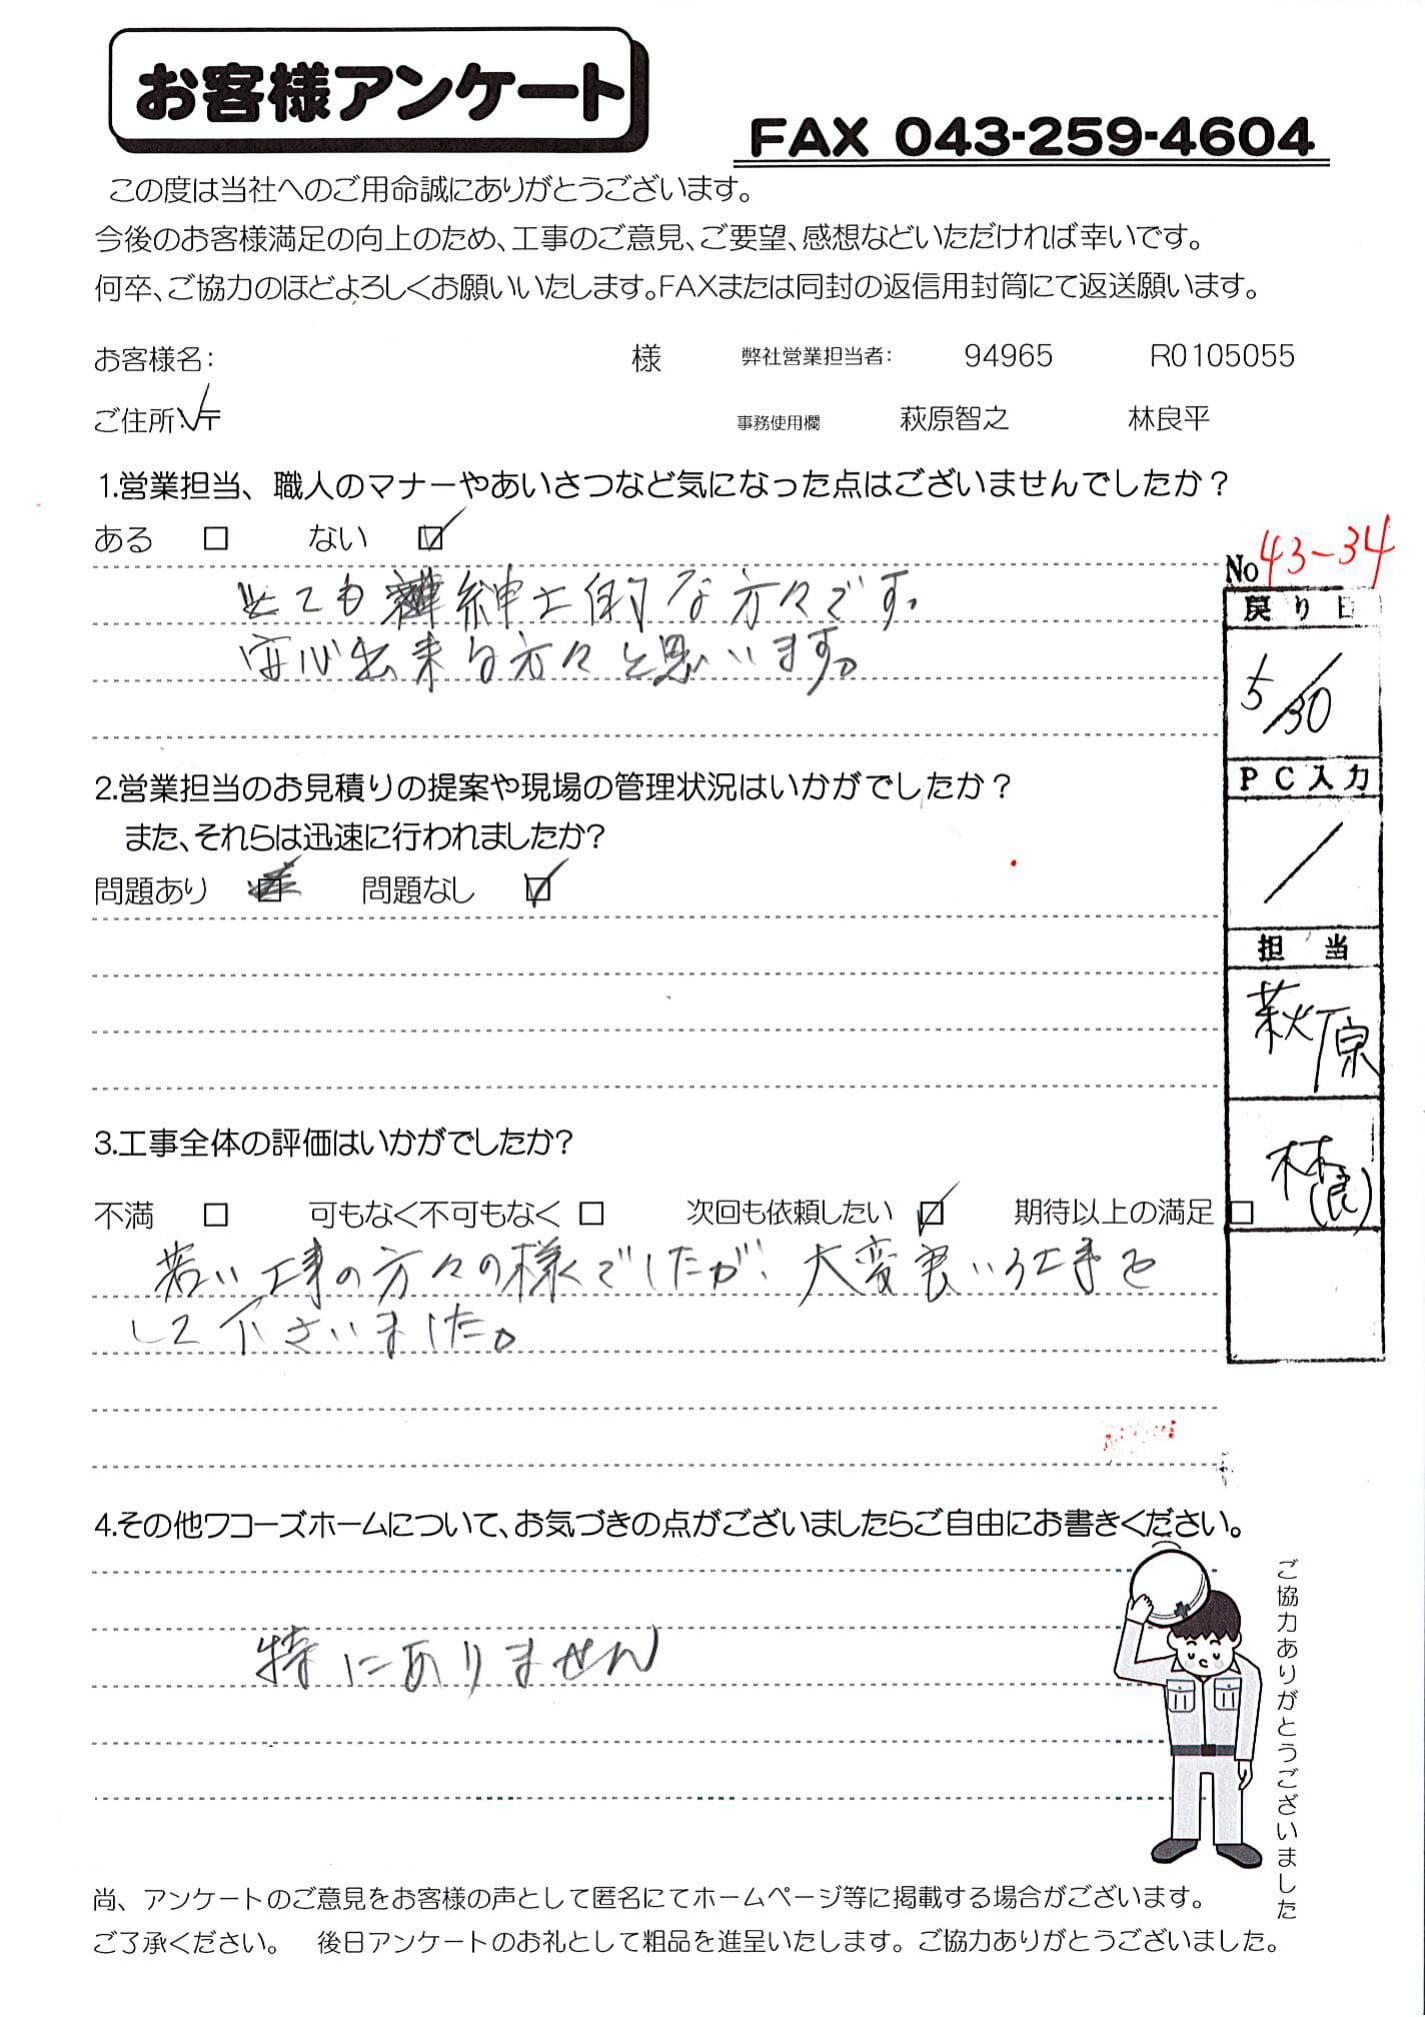 お客様アンケート
FAX 043-259-4604
この度は当社へのご用命誠にありがとうございます。
今後のお客様満足の向上のため、工事のご意見、ご要望、感想などいただければ幸いです。
何卒、ご協力のほどよろしくお願いいたします。FAXまたは同封の返信用封筒にて返送願います。
お客様名: 様 弊社営業担当者: 94965 R0105055
ご住所:〒 事務使用欄 萩原智之 林良平
1.営業担当、職人のマナーやあいさつなど気になった点はございませんでしたか？
ある □ ない ☑
とても紳士的な方々です。
安心出来る方々と思います。
No 43-34
戻り日
5/30
PC入力
/
担当
萩原
林(良)
2.営業担当のお見積りの提案や現場の管理状況はいかがでしたか？
また、それらは迅速に行われましたか?
問題あり □ 問題なし ☑
3.工事全体の評価はいかがでしたか?
不満 □ 可もなく不可もなく □ 次回も依頼したい ☑ 期待以上の満足 □
若い工事の方々の様でしたが、大変良い工事を
して下さいました。
4.その他ワコーズホームについて、お気づきの点がございましたらご自由にお書きください。
特にありません
ご協力ありがとうございました
尚、アンケートのご意見をお客様の声として匿名にてホームページ等に掲載する場合がございます。
ご了承ください。 後日アンケートのお礼として粗品を進呈いたします。ご協力ありがとうございました。